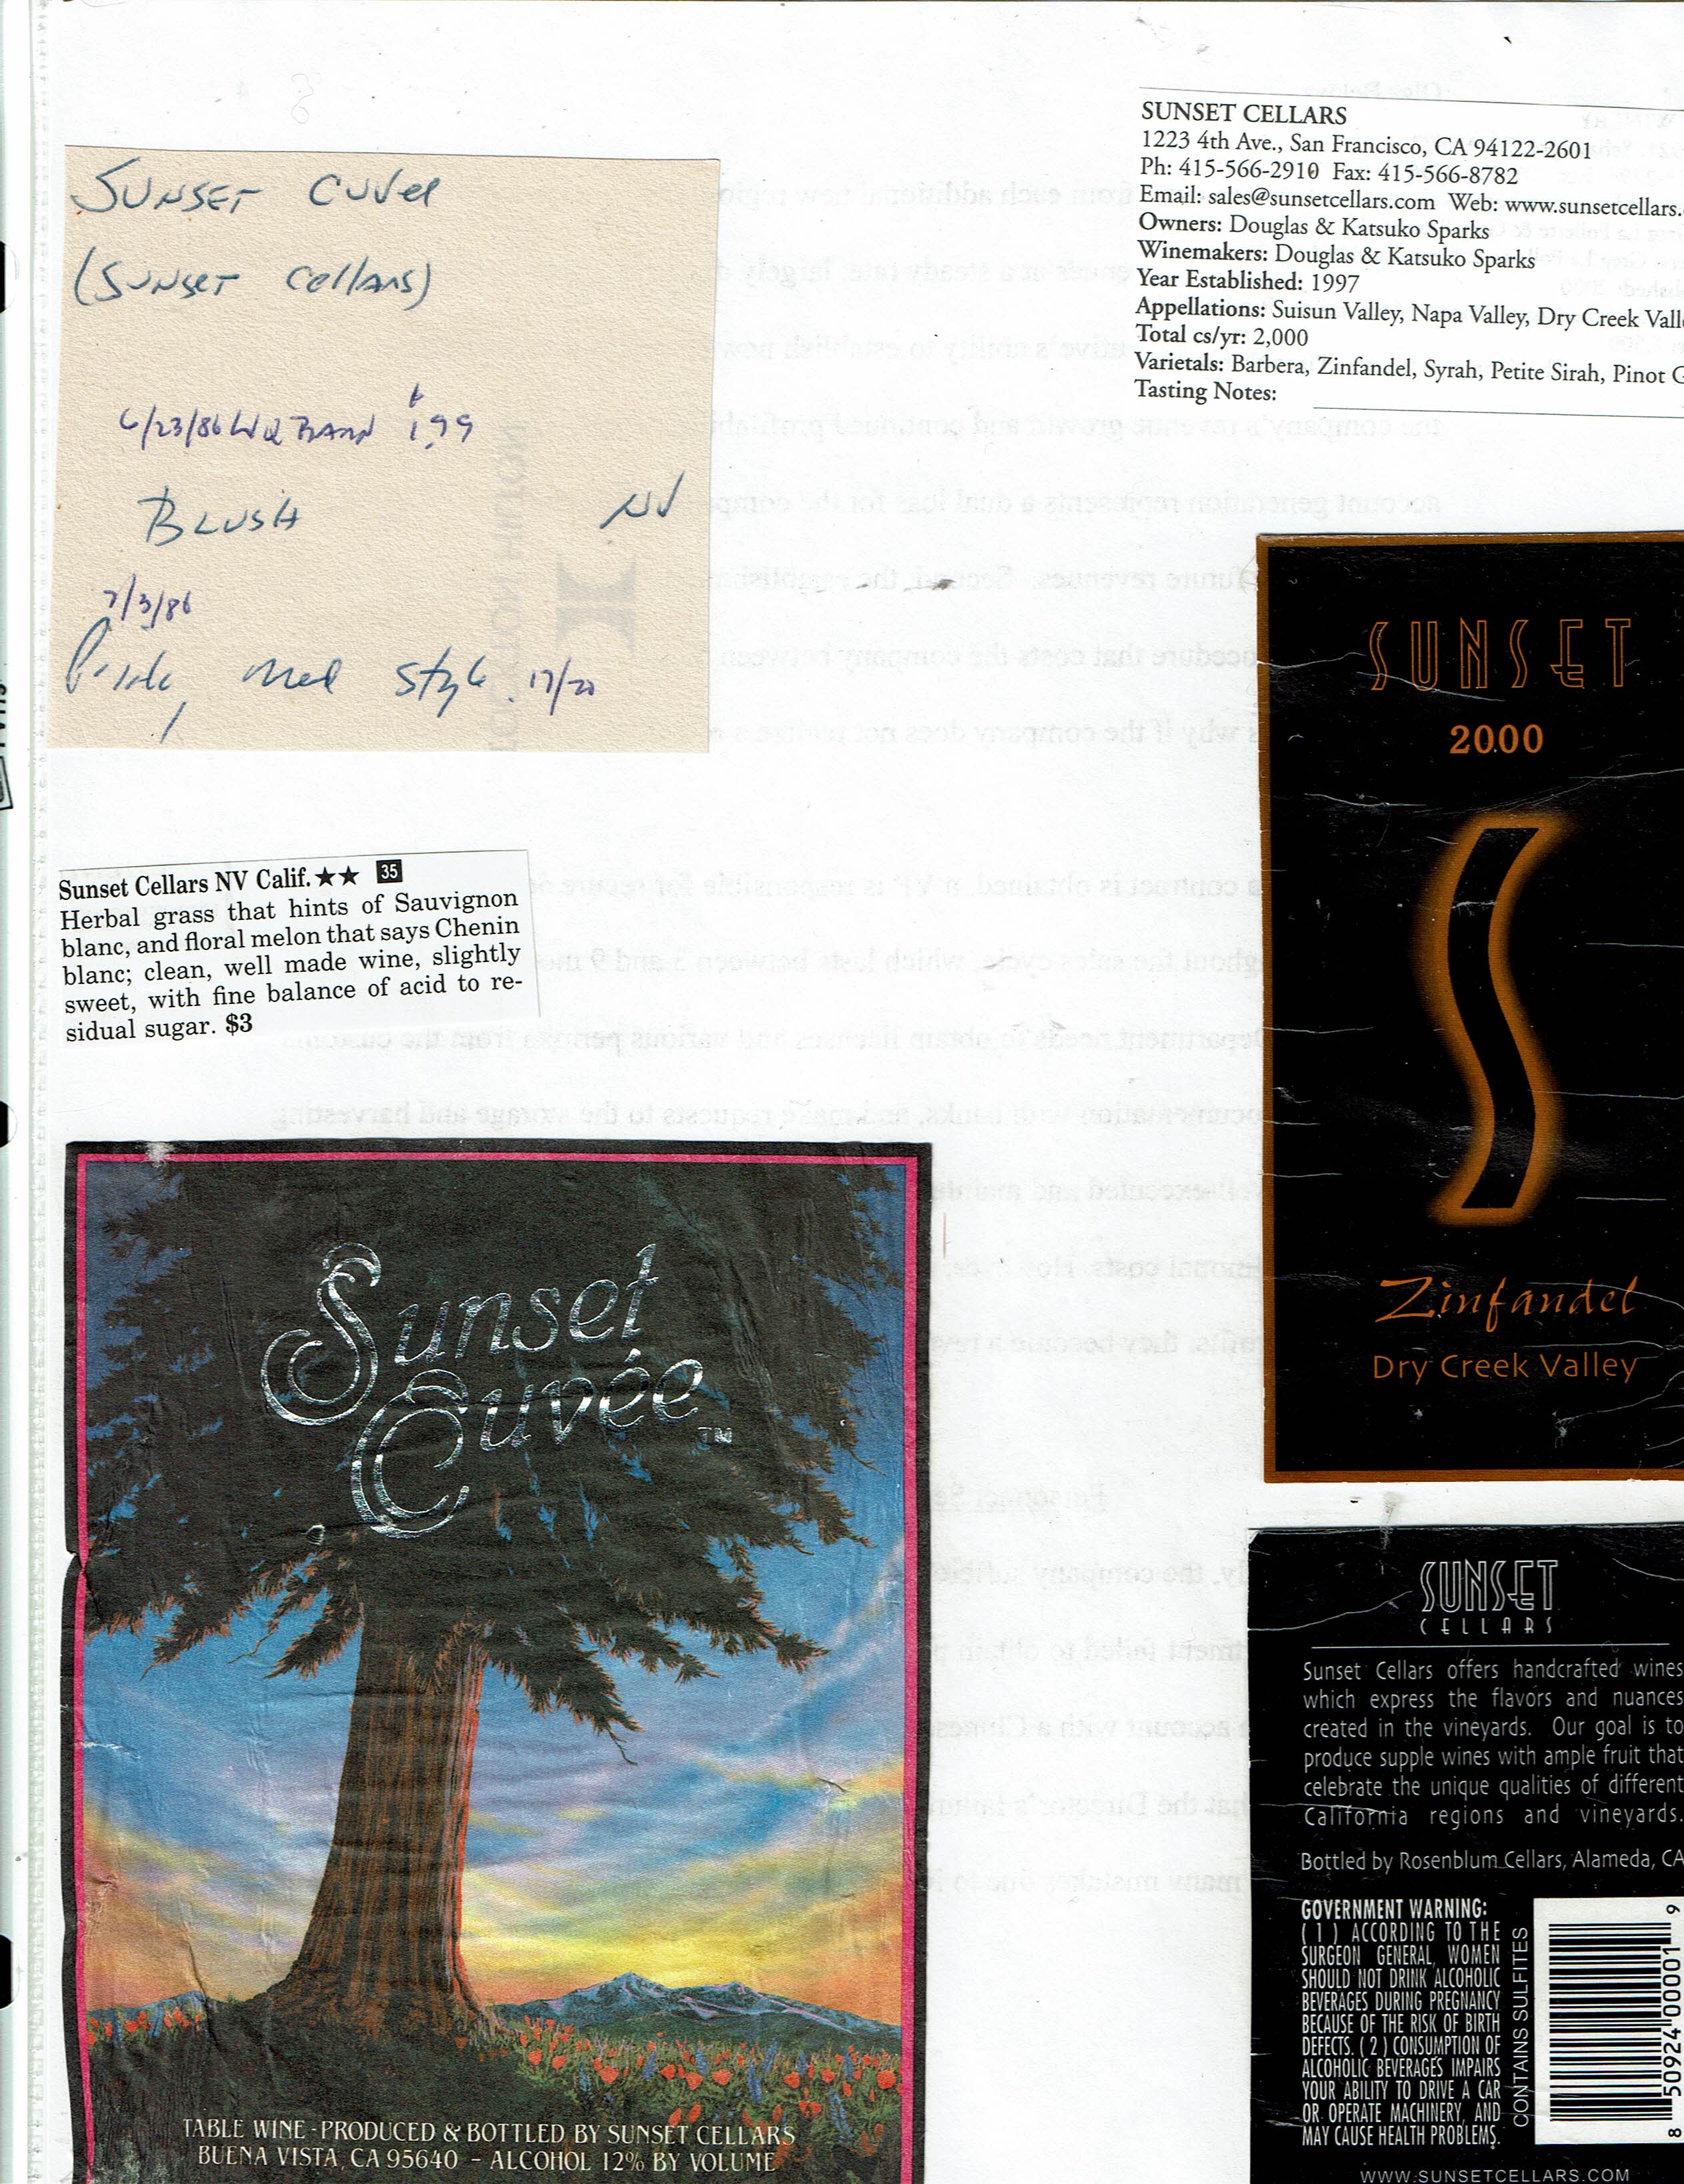 SUNSET CUVEE
(SUNSET CellARS)
6/23/86
1.99
BLUSH NV
7/3/86
med style. 17/20
SUNSET CELLARS
1223 4th Ave., San Francisco, CA 94122-2601
Ph: 415-566-2910 Fax: 415-566-8782
Email: sales@sunsetcellars.com Web: www.sunsetcellars.
Owners: Douglas & Katsuko Sparks
Winemakers: Douglas & Katsuko Sparks
Year Established: 1997
Appellations: Suisun Valley, Napa Valley, Dry Creek Vall
Total cs/yr: 2,000
Varietals: Barbera, Zinfandel, Syrah, Petite Sirah, Pinot G
Tasting Notes:
Sunset Cellars NV Calif. ★★ 35
Herbal grass that hints of Sauvignon
blanc, and floral melon that says Chenin
blanc; clean, well made wine, slightly
sweet, with fine balance of acid to re-
sidual sugar. $3
SUNSET
2000
S
Zinfandel
Dry Creek Valley
Sunset
Cuvée™
TABLE WINE - PRODUCED & BOTTLED BY SUNSET CELLARS
BUENA VISTA, CA 95640 - ALCOHOL 12% BY VOLUME
SUNSET
CELLARS
Sunset Cellars offers handcrafted wines
which express the flavors and nuances
created in the vineyards. Our goal is to
produce supple wines with ample fruit that
celebrate the unique qualities of different
California regions and vineyards.
Bottled by Rosenblum Cellars, Alameda, CA
GOVERNMENT WARNING:
(1) ACCORDING TO THE
SURGEON GENERAL, WOMEN
SHOULD NOT DRINK ALCOHOLIC
BEVERAGES DURING PREGNANCY
BECAUSE OF THE RISK OF BIRTH
DEFECTS. (2) CONSUMPTION OF
ALCOHOLIC BEVERAGES IMPAIRS
YOUR ABILITY TO DRIVE A CAR
OR OPERATE MACHINERY, AND
MAY CAUSE HEALTH PROBLEMS.
CONTAINS SULFITES
8 50924 00001 9
WWW.SUNSETCELLARS.COM